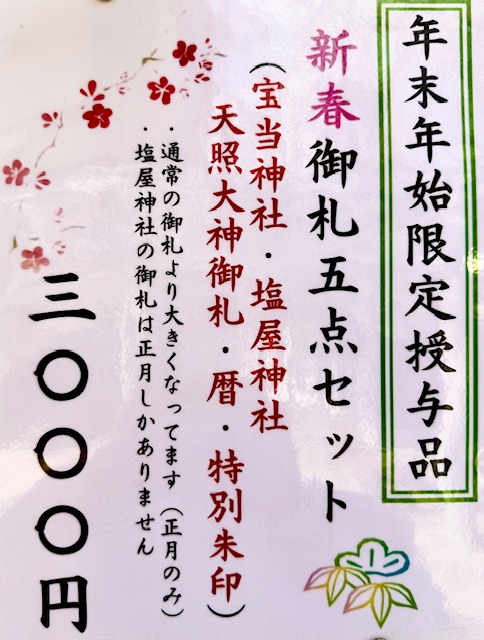 年末年始限定授与品
新春御札五点セット
(宝当神社・塩屋神社
天照大神御札・暦・特別朱印)
・通常の御札より大きくなってます(正月のみ)
・塩屋神社の御札は正月しかありません
三〇〇〇円